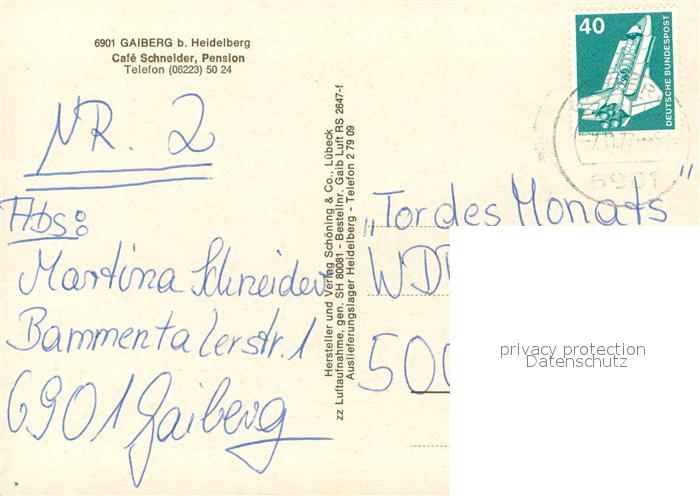 6901 GAIBERG b. Heidelberg
Café Schneider, Pension
Telefon (06223) 50 24
NR. 2
Abs:
Martina Schneider
Bammentalerstr. 1
6901 Gaiberg
Hersteller und Verlag Schöning & Co., Lübeck
zz Luftaufnahme, gen. SH 80081 - Bestellnr. Gaib Luft RS 2647-f
Auslieferungslager Heidelberg - Telefon 2 79 09
40
DEUTSCHE BUNDESPOST
6901
„Tor des Monats"
WD
500
privacy protection
Datenschutz